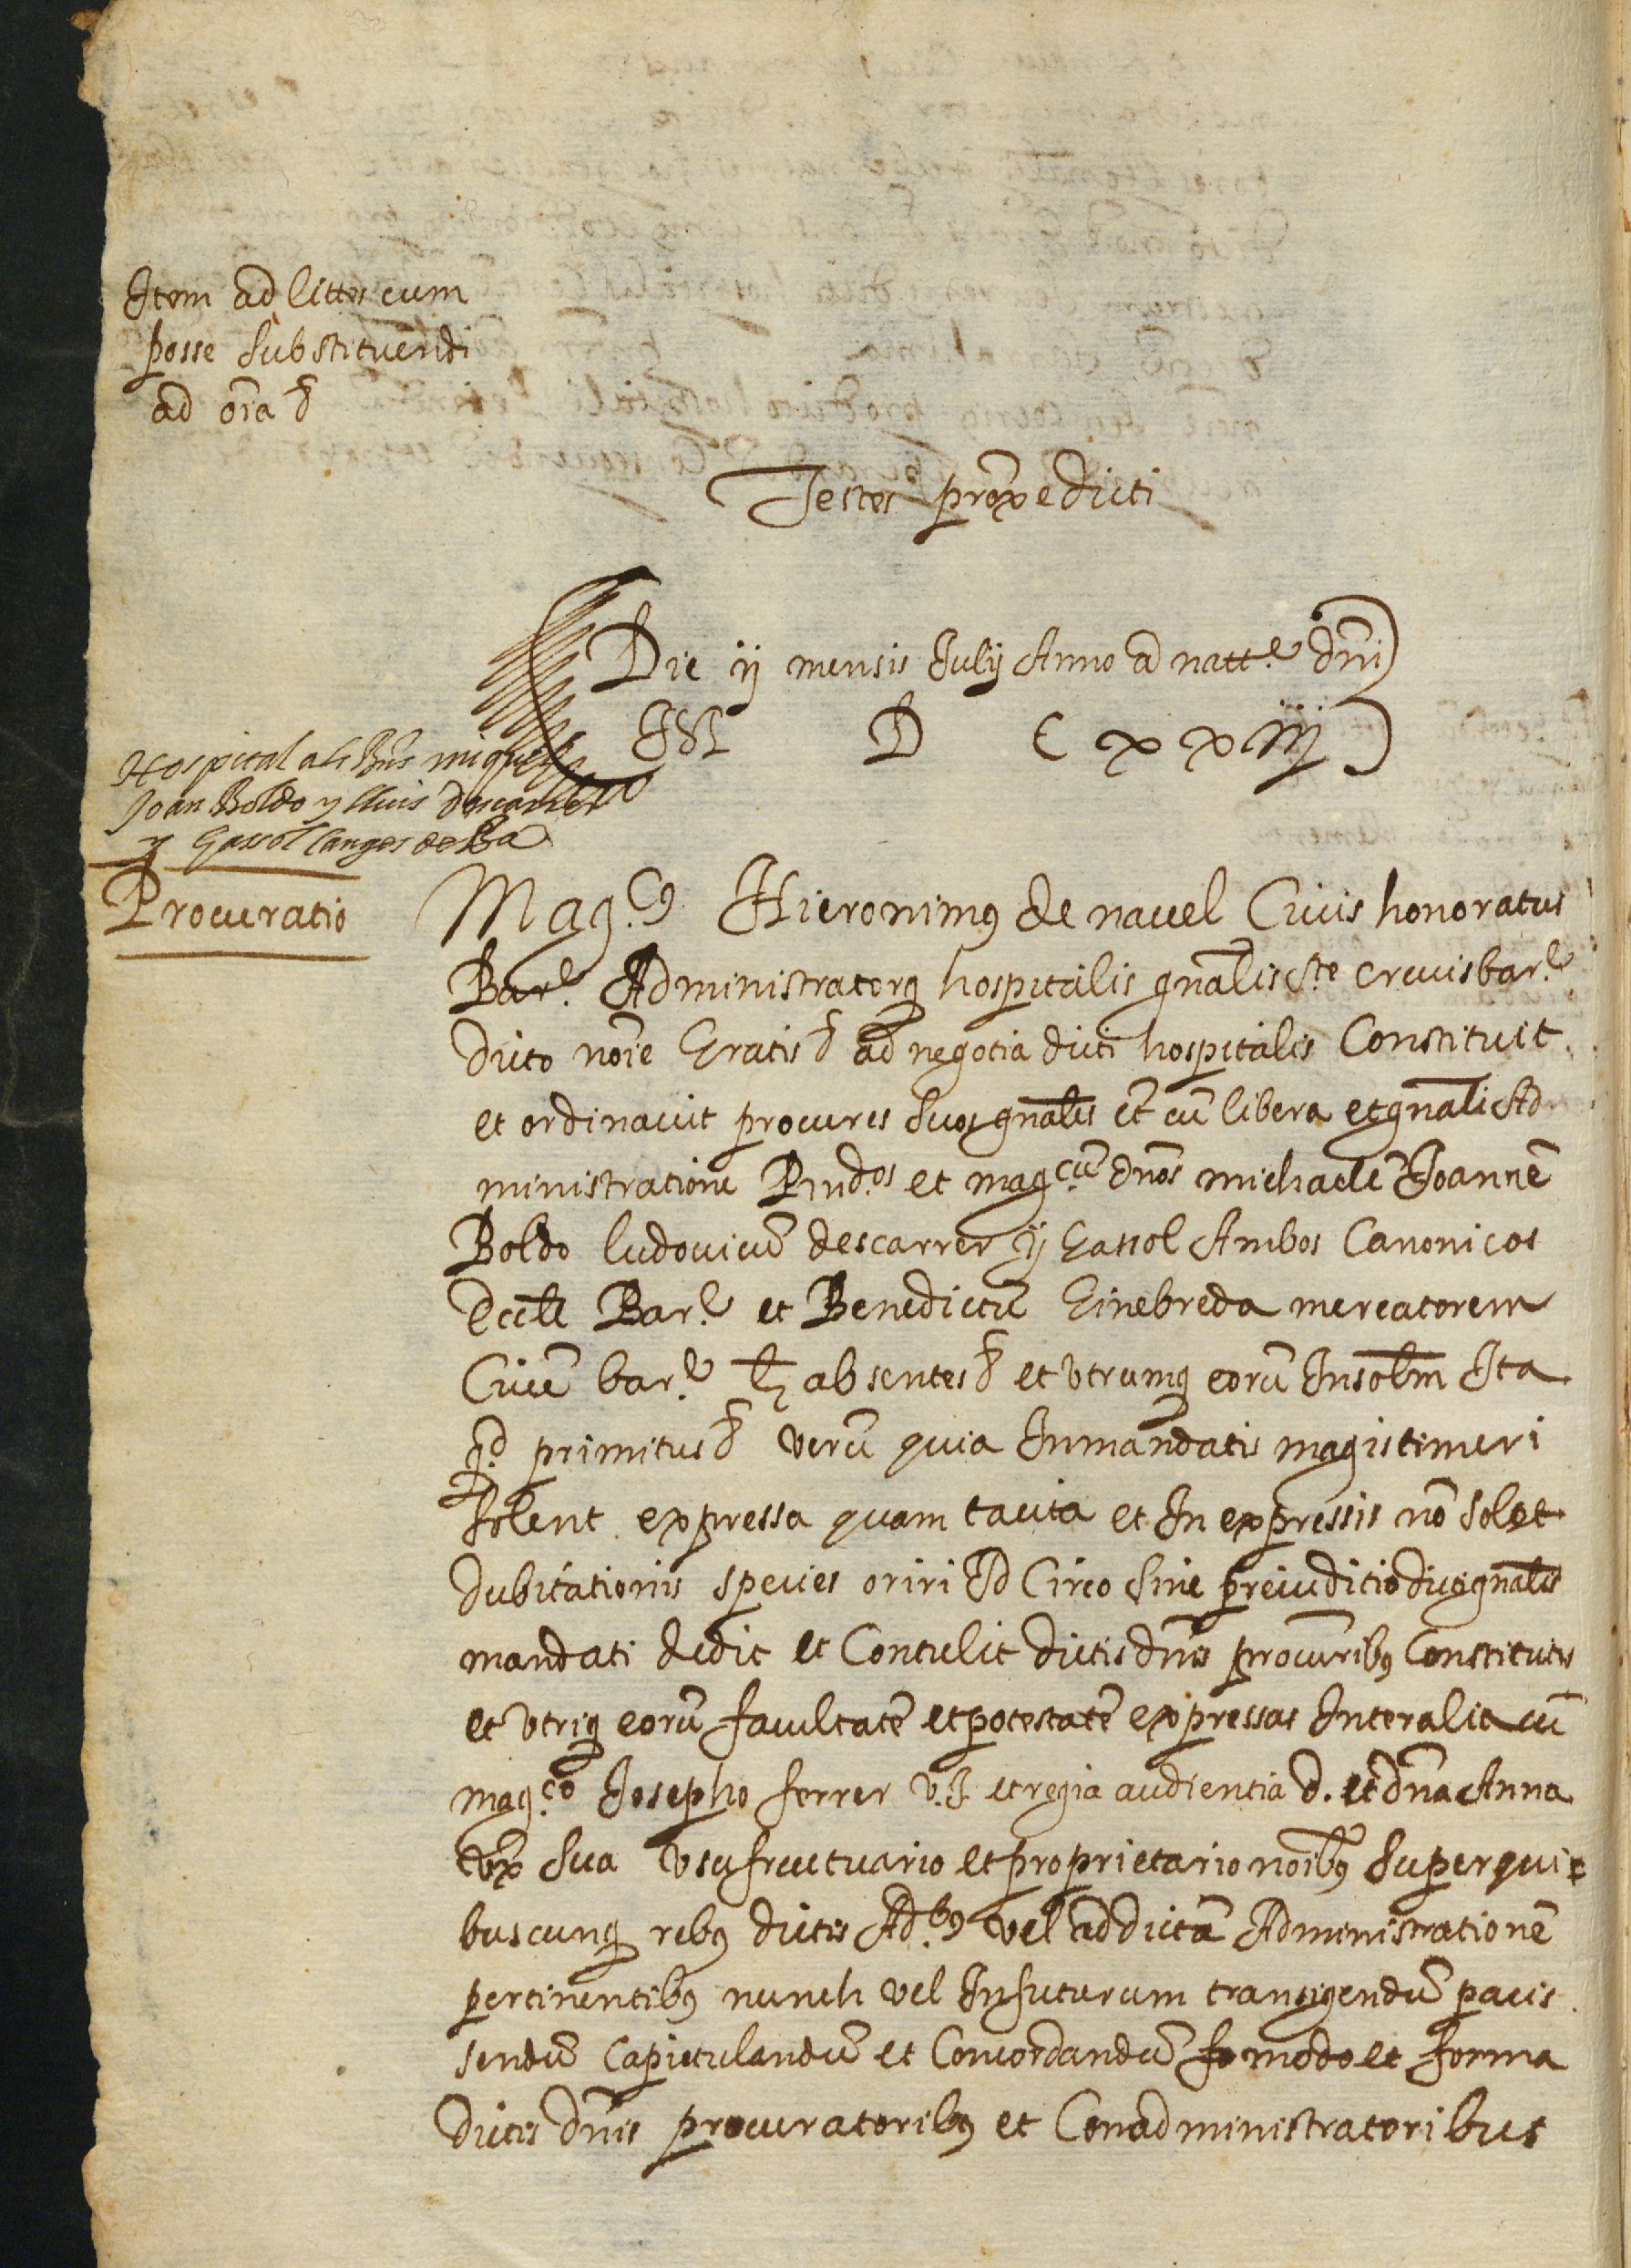 Item ad littes cum
posse substituendi
ad oīa &
Testes proxe dicti
Die ij mensis Julij Anno a natte. dnī
M D C xxiiij
Hospital als Rūs miquel
Joan Boldo y lluis descarrer
y Gassol canges de Ba
Procuratio
Mag.cꝰ Hieronimꝰ de navel Civis honoratus
Bar.e Administratorq hospitalis gnālis Ste crucis bar.e
dicto noīe Gratis & ad negotia dicti hospitalis Constituit
et ordinavit procures suos gnales et cū libera et gnāli Ad
ministratione Rndos et magcū dnōs michaelē Joannē
Boldo ludovicū descarrer y Gassol Ambos Canonicos
Eccle Bar.e et Benedictū Ginebreda mercatorem
Civē bar.e absentes & et utrumq eorū Insolm Ita
qd primitus & verū quia In mandatis magis timeri
solent expressa quam tacita et In expressis nō solet
dubitationis species oriri Id Circo sine preiuditio gnalis
mandati dedit et Contulit dictis dnīs procuribꝰ Constitutis
et utriq eorū facultatē et potestatē expressas Inter alia cū
mag.co Josepho ferrer v.J. et regia audientia d. et dnā Anna
uxē sua usufructuario et proprietario noībꝰ super qui
buscunq rebꝰ dictis Ad.bꝰ vel ad dictā Administrationē
pertinentibꝰ nunch vel In futurum transigendū pacis
sendū Capitulandū et Concordandū modo et forma
dictis dnīs procuratoribꝰ et Conadministratoribus